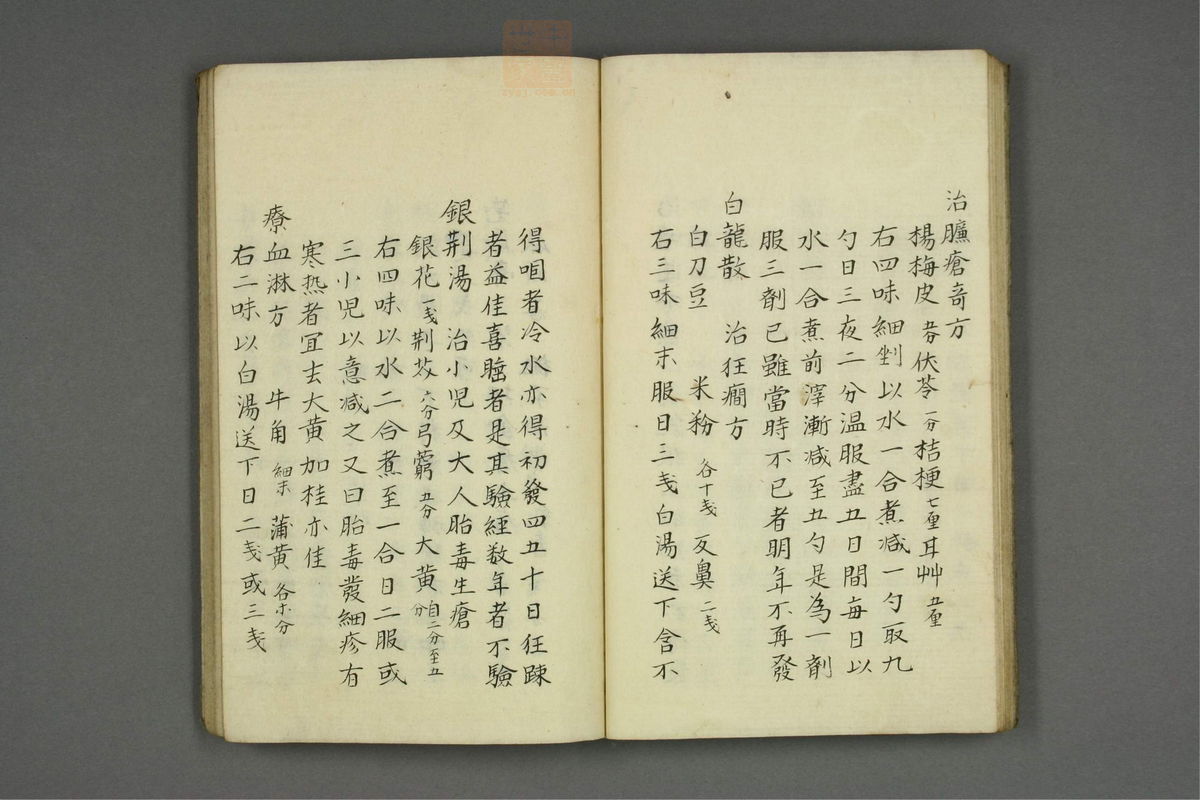 治臁瘡奇方
楊梅皮 茯苓 一分 桔梗 七厘 耳艸 五厘
右四味細剉以水一合煮減一勺取九
勺日三夜二分温服盡五日間每日以
水一合煮前滓漸減至五勺是為一劑
服三劑已雖當時不已者明年不再發
白龍散 治狂癇方
白刀豆 米粉 各十戋 反鼻 二戋
右三味細末服日三戋白湯送下含不
得咽者冷水亦得初發四五十日狂躁
者益佳喜睡者是其驗經数年者不驗
銀荆湯 治小児及大人胎毒生瘡
銀花 一戋 荆芥 六分 弓藭 五分 大黄 自二分至五分
右四味以水二合煮至一合日二服或
三小児以意减之又曰胎毒發細疹有
寒热者宜去大黄加桂亦佳
療血淋方 牛角 細末 蒲黄 各等分
右二味以白湯送下日二戋或三戋